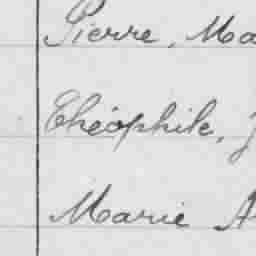 Pierre, Ma
Théophile, J
Marie A